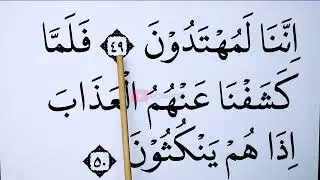 اِنَّنَا لَمُهْتَدُوْنَ ﴿٤٩﴾ فَلَمَّا
كَشَفْنَا عَنْهُمُ الْعَذَابَ
اِذَا هُمْ يَنْكُثُوْنَ ﴿٥٠﴾